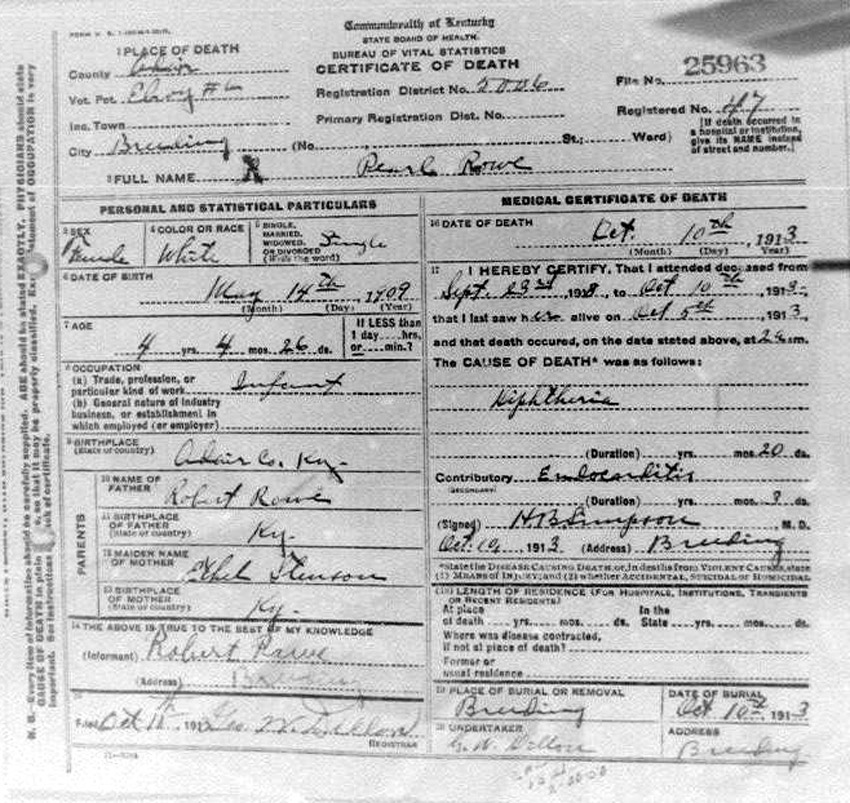 Commonwealth of Kentucky
STATE BOARD OF HEALTH.
BUREAU OF VITAL STATISTICS
CERTIFICATE OF DEATH
1 PLACE OF DEATH
County Adair
Vot. Pct. Elroy #6
Inc. Town
City Breeding (No. St.; Ward)
Registration District No. 5006
Primary Registration Dist. No.
File No. 25963
Registered No. 47
[If death occurred in
a hospital or institution,
give its NAME instead
of street and number.]
2 FULL NAME X Pearl Rowe
PERSONAL AND STATISTICAL PARTICULARS
3 SEX
Female
4 COLOR OR RACE
White
5 SINGLE,
MARRIED,
WIDOWED,
OR DIVORCED
(Write the word)
Single
6 DATE OF BIRTH
May 14th, 1909
(Month) (Day) (Year)
7 AGE
4 yrs. 4 mos. 26 ds.
If LESS than
1 day hrs.
or min.?
8 OCCUPATION
(a) Trade, profession, or
particular kind of work Infant
(b) General nature of industry
business, or establishment in
which employed (or employer)
9 BIRTHPLACE
(State or country)
Adair Co. Ky.
PARENTS
10 NAME OF
FATHER
Robert Rowe
11 BIRTHPLACE
OF FATHER
(State or country)
Ky.
12 MAIDEN NAME
OF MOTHER
Ethel
13 BIRTHPLACE
OF MOTHER
(State or country)
Ky.
14 THE ABOVE IS TRUE TO THE BEST OF MY KNOWLEDGE
(Informant) Robert Rowe
(Address) Breeding
15
Filed Oct 191 Geo. W. Dillon
REGISTRAR
MEDICAL CERTIFICATE OF DEATH
16 DATE OF DEATH
Oct. 10th, 1913
(Month) (Day) (Year)
17 I HEREBY CERTIFY, That I attended deceased from
Sept. 23rd 191 , to Oct 10th, 1913,
that I last saw her alive on Oct 5th 1913,
and that death occured, on the date stated above, at 2 a m.
The CAUSE OF DEATH* was as follows:
Diphtheria
(Duration) yrs. mos. 20 ds.
Contributory Endocarditis
(SECONDARY)
(Duration) yrs. mos. ds.
(Signed) H B Simpson M. D.
Oct. 1913 (Address) Breeding
*State the DISEASE CAUSING DEATH or, in deaths from VIOLENT CAUSES, state
(1) MEANS OF INJURY; and (2) whether ACCIDENTAL, SUICIDAL or HOMICIDAL
(18) LENGTH OF RESIDENCE (FOR HOSPITALS, INSTITUTIONS, TRANSIENTS
OR RECENT RESIDENTS)
At place
of death yrs. mos. ds.
In the
State yrs. mos. ds.
Where was disease contracted,
if not at place of death?
Former or
usual residence
19 PLACE OF BURIAL OR REMOVAL
Breeding
DATE OF BURIAL
Oct. 10th, 1913
20 UNDERTAKER
G. W. Dillon
ADDRESS
Breeding
N. B. Every item of information should be carefully supplied. AGE should be stated EXACTLY. PHYSICIANS should state
CAUSE OF DEATH in plain so that it may be properly classified. statement of OCCUPATION is very
important. See instructions back of certificate.